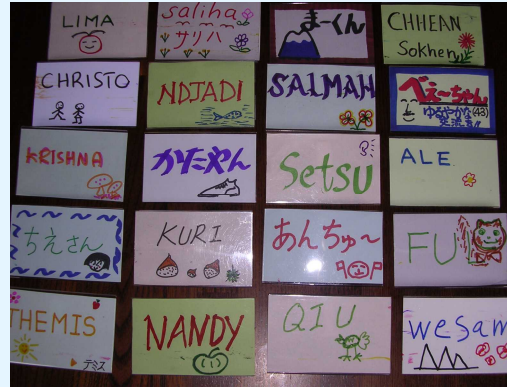 LIMA
saliha
サリハ
まーくん
CHHEAN
Sokhen
CHRISTO
NDJADI
SALMAH
べぇーちゃん
KRISHNA
かたやん
Setsu
ALE
ちえさん
KURI
あんちゅ〜
FU
THEMIS
テミス
NANDY
QIU
wesam